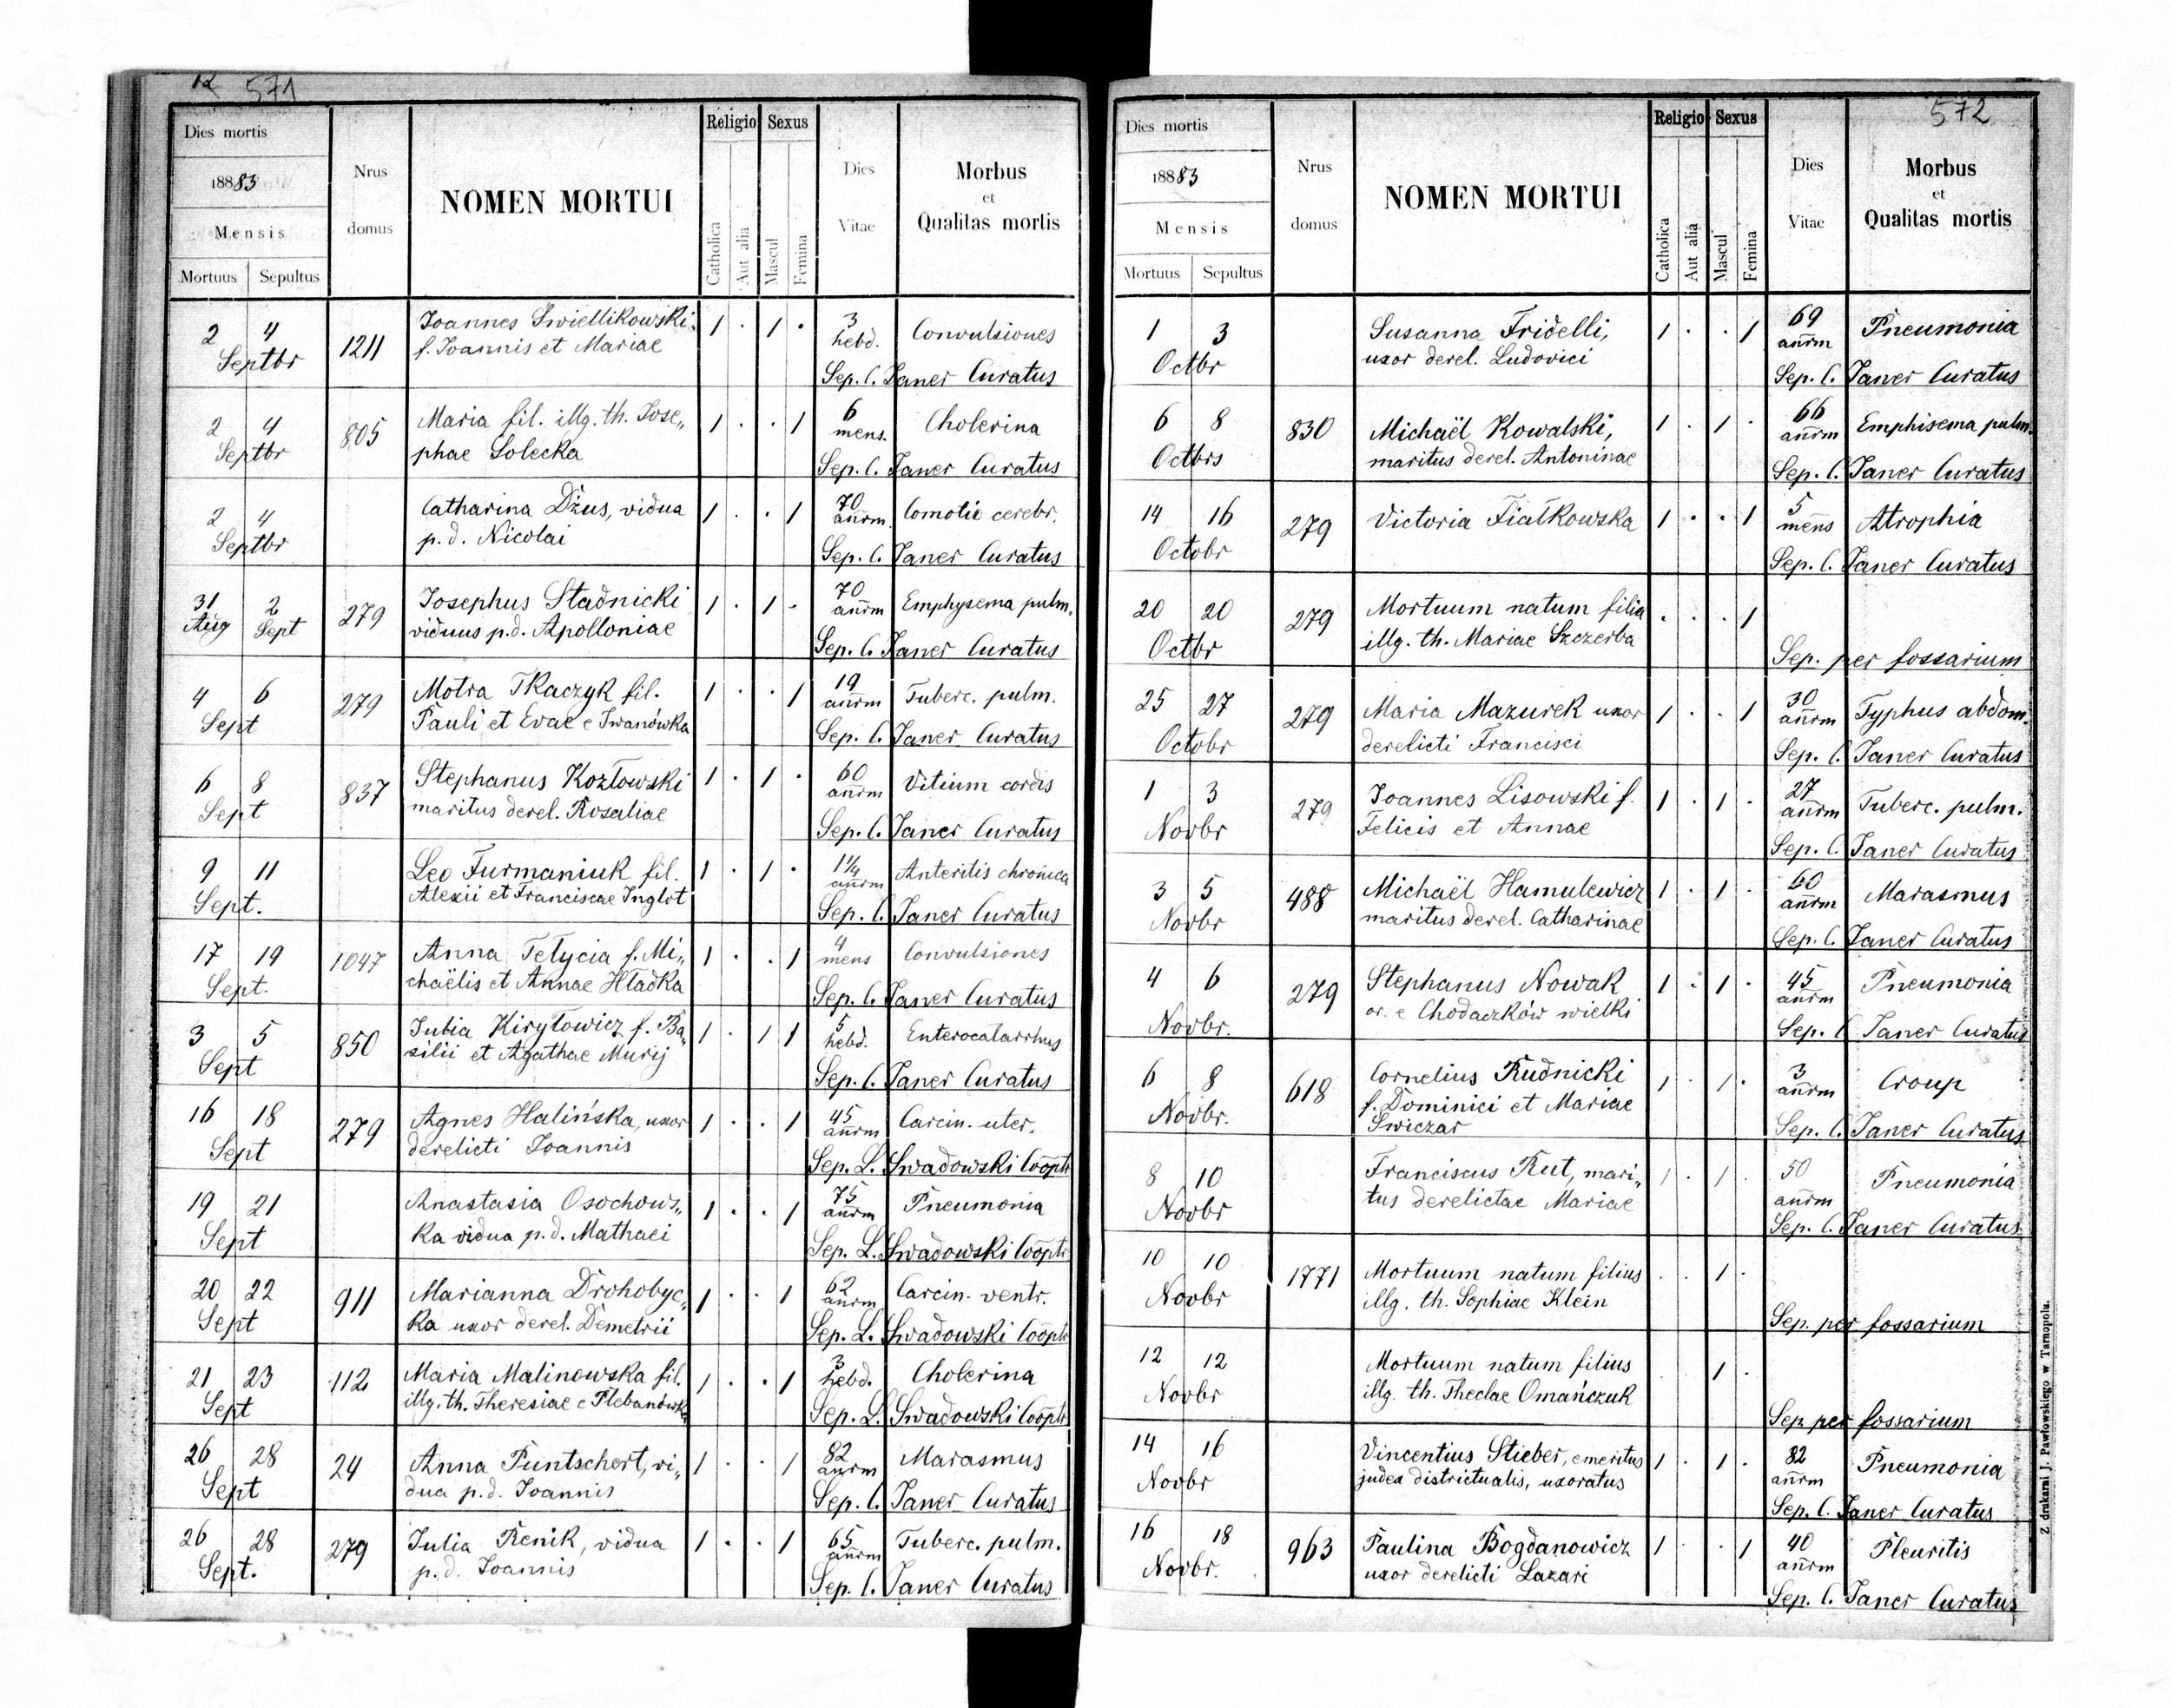 12 571
Dies mortis
18883
Mensis
Mortuus Sepultus
Nrus
domus
NOMEN MORTUI
Religio
Catholica
Aut alia
Sexus
Mascul
Femina
Dies
Vitae
Morbus
et
Qualitas mortis
2 4 1211 Joannes Swiellikowski 1 . 1 . 3 Convulsiones
Septbr f. Joannis et Mariae hebd.
Sep. C. Janer Curatus
2 4 805 Maria fil. illg. th. Jose„ 1 . . 1 6 Cholerina
Septbr phae Solecka mens.
Sep. C. Janer Curatus
2 4 Catharina Dżus, vidua 1 . . 1 70 Comotio cerebr.
Septbr p. d. Nicolai annrm
Sep. C. Janer Curatus
31 2 279 Josephus Stadnicki 1 . 1 . 70 Emphysema pulm.
Aug Sept viduus p. d. Apolloniae annrm
Sep. C. Janer Curatus
4 6 279 Motra Tkaczyk fil. 1 . . 1 19 Tuberc. pulm.
Sept Pauli et Evae e Iwanówka annrm
Sep. C. Janer Curatus
6 8 837 Stephanus Kozłowski 1 . 1 . 60 Vitium cordis
Sept maritus derel. Rosaliae annrm
Sep. C. Janer Curatus
9 11 Leo Furmaniuk fil. 1 . 1 . 1¼ Anteritis chronica
Sept. Alexii et Franciscae Inglot annrm
Sep. C. Janer Curatus
17 19 1047 Anna Tetycia f. Mi„ 1 . . 1 4 Convulsiones
Sept. chaëlis et Annae Hładka mens
Sep. C. Janer Curatus
3 5 850 Julia Kiryłowicz f. Ba„ 1 . 1 1 5 Enterocatarrhus
Sept silii et Agathae Murij hebd.
Sep. C. Janer Curatus
16 18 279 Agnes Halińska, uxor 1 . . 1 45 Carcin. uter.
Sept derelicti Joannis annrm
Sep. L. Swadowski Coöptr
19 21 Anastasia Osochows„ 1 . . 1 75 Pneumonia
Sept ka vidua p. d. Mathaei annrm
Sep. L. Swadowski Coöptr
20 22 911 Marianna Drohobyc„ 1 . . 1 62 Carcin. ventr.
Sept ka uxor derel. Demetrii annrm
Sep. L. Swadowski Coöptr
21 23 112 Maria Malinowska fil. 1 . . 1 3 Cholerina
Sept illg. th. Theresiae e Plebanówka hebd.
Sep. L. Swadowski Coöptr
26 28 24 Anna Puntschert, vi„ 1 . . 1 82 Marasmus
Sept dua p. d. Joannis annrm
Sep. C. Janer Curatus
26 28 279 Julia Renik, vidua 1 . . 1 65 Tuberc. pulm.
Sept. p. d. Joannis annrm
Sep. C. Janer Curatus
572
Dies mortis
18883
Mensis
Mortuus Sepultus
Nrus
domus
NOMEN MORTUI
Religio
Catholica
Aut alia
Sexus
Mascul
Femina
Dies
Vitae
Morbus
et
Qualitas mortis
1 3 Susanna Fridelli, 1 . . 1 69 Pneumonia
Octbr uxor derel. Ludovici annrm
Sep. C. Janer Curatus
6 8 830 Michaël Kowalski, 1 . 1 . 66 Emphisema pulm.
Octbrs maritus derel. Antoninae annrm
Sep. C. Janer Curatus
14 16 279 Victoria Fiałkowska 1 . . 1 5 Atrophia
Octobr mens
Sep. C. Janer Curatus
20 20 279 Mortuum natum filia . . . 1
Octbr illg. th. Mariae Szczerba
Sep. per fossarium
25 27 279 Maria Mazurek uxor 1 . . 1 30 Typhus abdom.
Octobr derelicti Francisci annrm
Sep. C. Janer Curatus
1 3 279 Joannes Lisowski f. 1 . 1 . 27 Tuberc. pulm.
Novbr Felicis et Annae annrm
Sep. C. Janer Curatus
3 5 488 Michaël Hamulewicz 1 . 1 . 60 Marasmus
Novbr maritus derel. Catharinae annrm
Sep. C. Janer Curatus
4 6 279 Stephanus Nowak 1 . 1 . 45 Pneumonia
Novbr. or. e Chodaczków wielki annrm
Sep. C. Janer Curatus
6 8 618 Cornelius Rudnicki 1 . 1 . 3 Croup
Novbr. f. Dominici et Mariae annrm
Swiczar
Sep. C. Janer Curatus
8 10 Franciscus Rut, mari„ 1 . 1 . 50 Pneumonia
Novbr tus derelictae Mariae annrm
Sep. C. Janer Curatus
10 10 1771 Mortuum natum filius . . 1 .
Novbr illg. th. Sophiae Klein
Sep. per fossarium
12 12 Mortuum natum filius 1 .
Novbr illg. th. Theclae Omańczuk
Sep per fossarium
14 16 Vincentius Stieber, emeritus 1 . 1 . 82 Pneumonia
Novbr judex districtualis, uxoratus annrm
Sep. C. Janer Curatus
16 18 963 Paulina Bogdanowicz 1 . . 1 40 Pleuritis
Novbr. uxor derelicti Lazari annrm
Sep. C. Janer Curatus
Z drukarni J. Pawłowskiego w Tarnopolu.